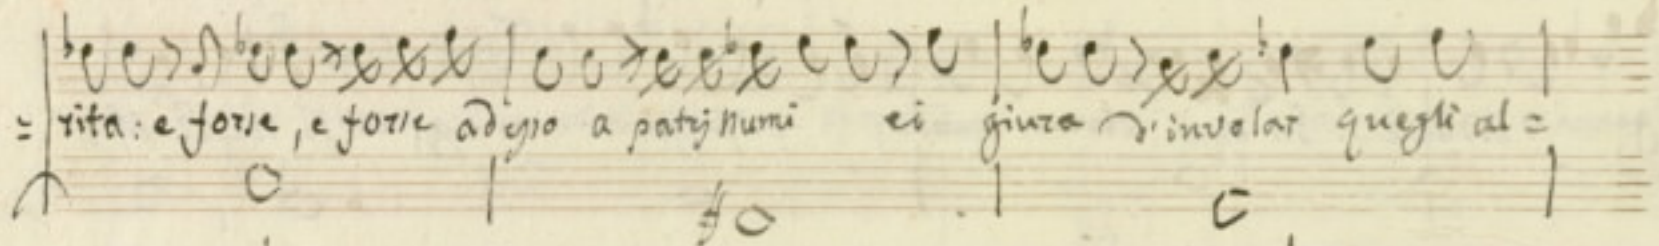 = rita: e forse, e forse adesso a patrj numi ei giura d'involar quegli al =